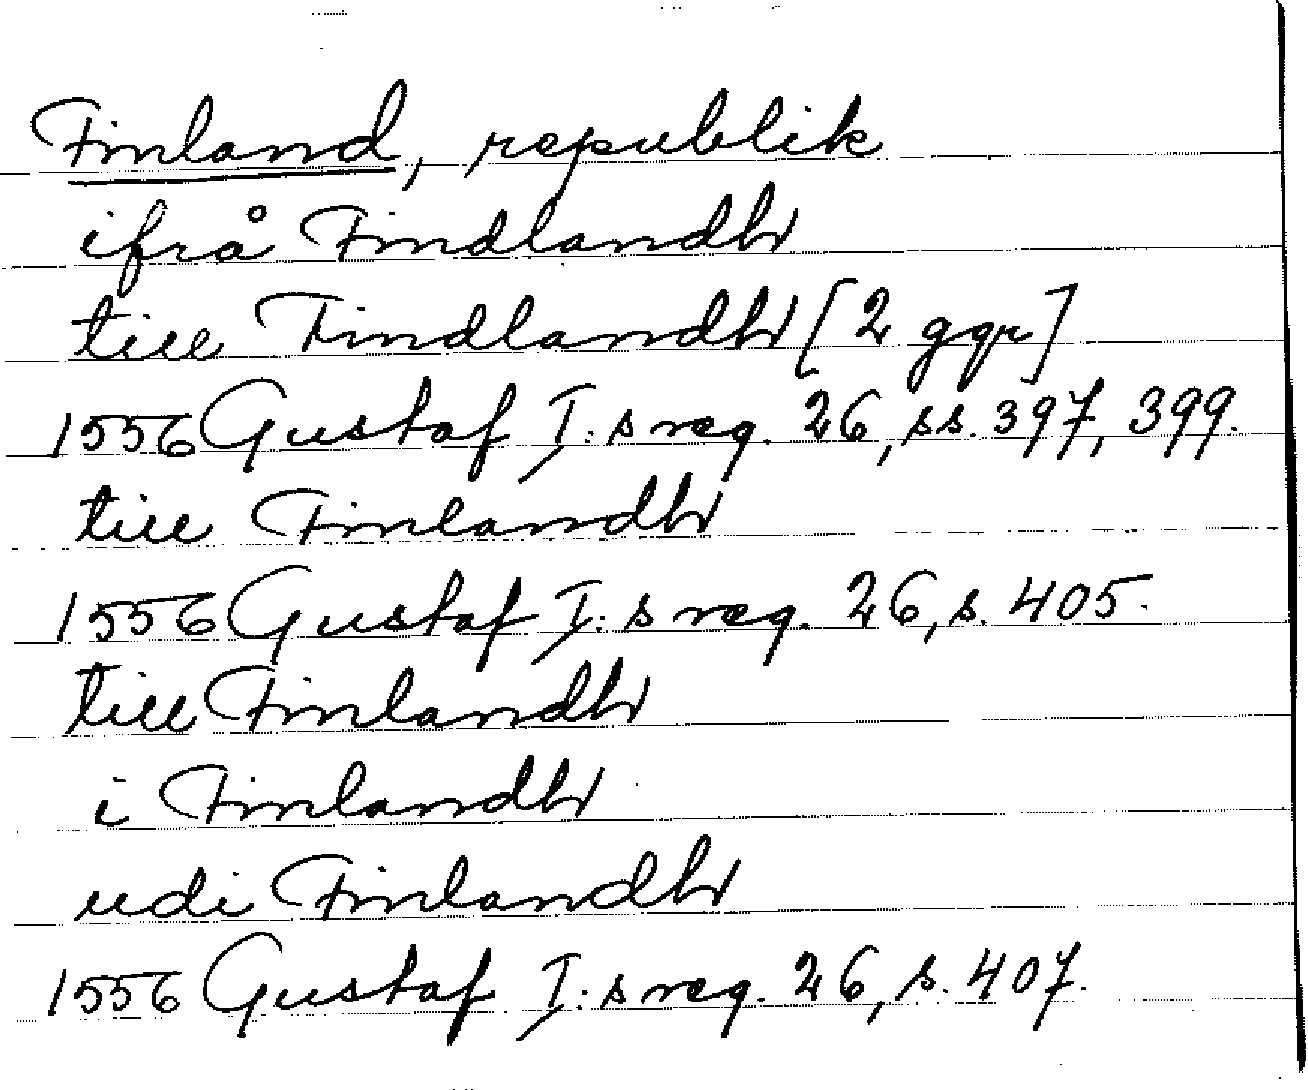 Finland, republik
ifrå Findlandh
till Findlandh [2 ggr]
1556 Gustaf I:s reg. 26, ss. 397, 399.
till Finlandh
1556 Gustaf I:s reg. 26, s. 405.
till Finlandh
i Finlandh
udi Finlandh
1556 Gustaf I:s reg. 26, s. 407.